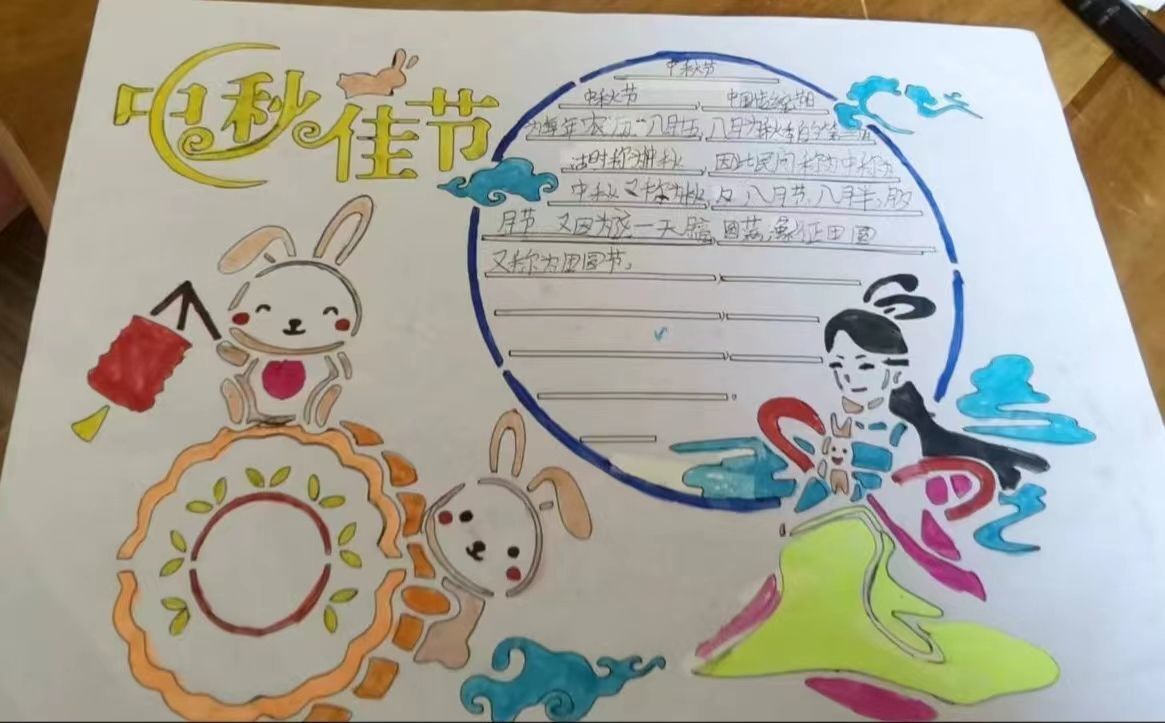 中秋佳节
中秋节
中秋节 中国传统节日
为每年农历"八月十五,八月为秋季的第二
古时称为仲秋 因此民间称为中秋
中秋又称为秋夕,八月节,八月半,月夕
月节 又因为这一天月 圆满,象征团圆
又称为团圆节。